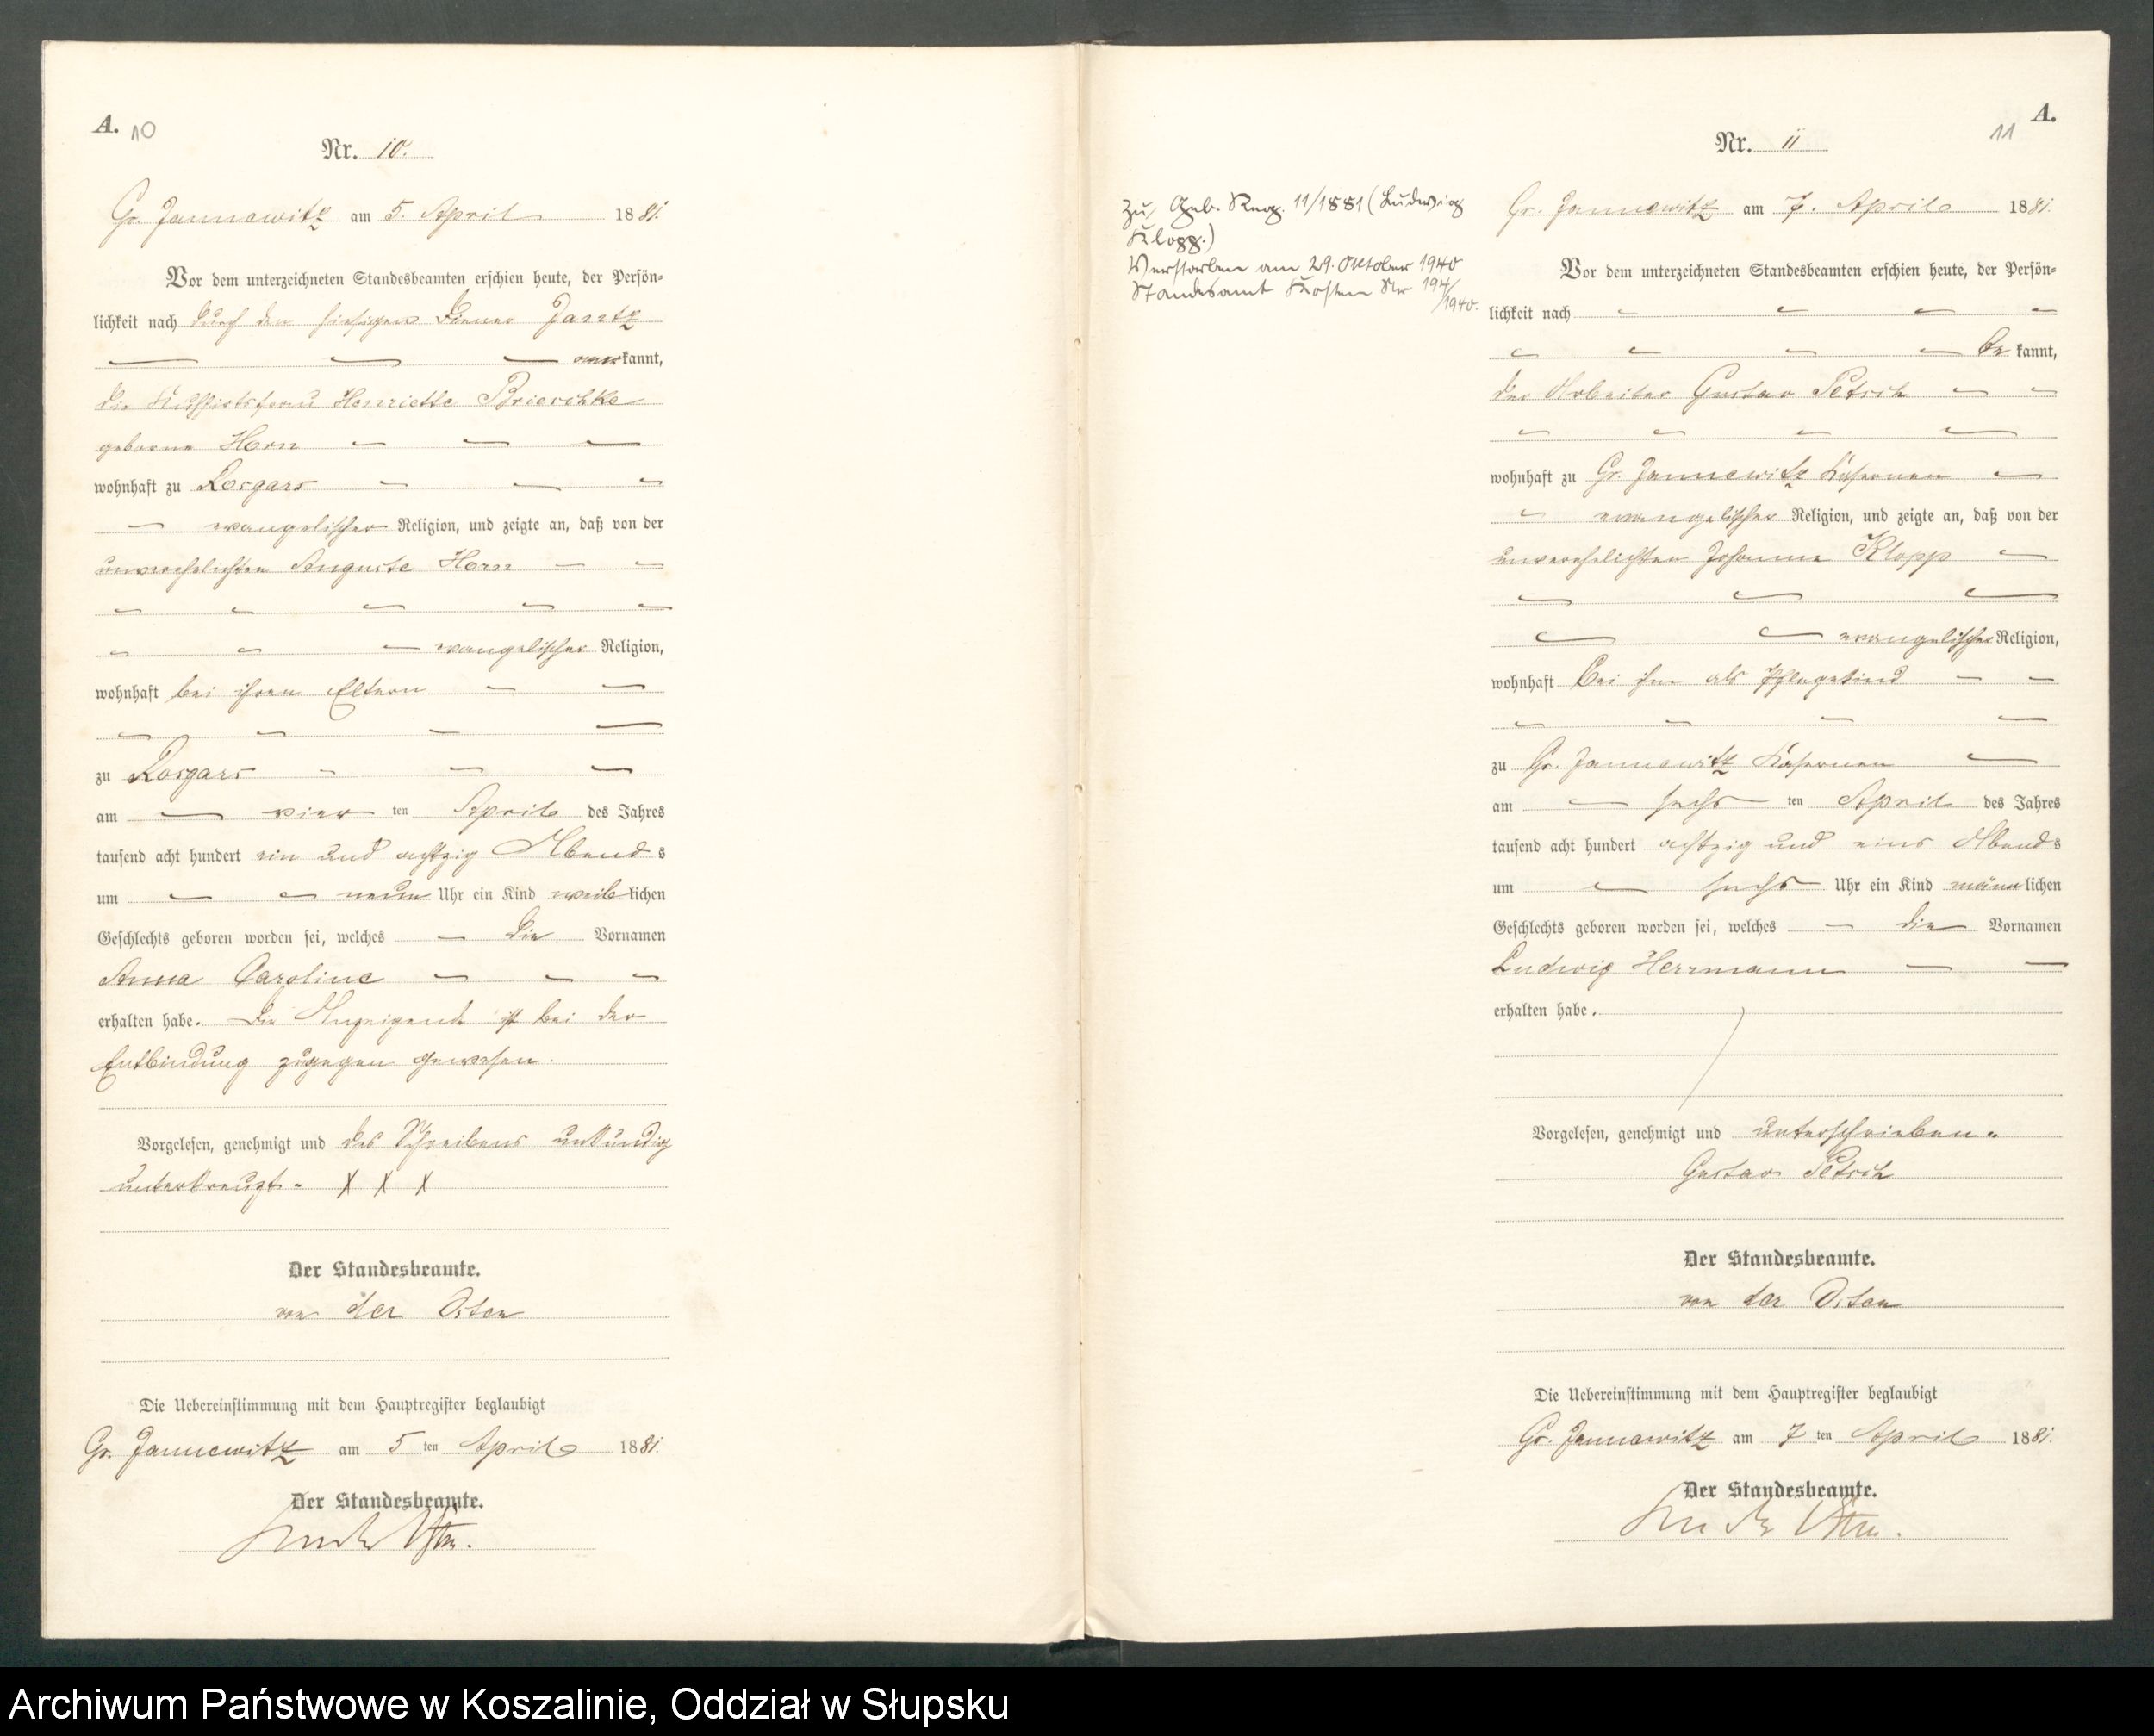 A.
10
Nr. 10.
Gr. Jannewitz am 5. April 1881.
Vor dem unterzeichneten Standesbeamten erschien heute, der Persön-
lichkeit nach durch den hiesigen Diener Jantz
anerkannt,
die Kuhhirtsfrau Henriette Brieschke
geborne Horn
wohnhaft zu Rosgars
evangelischer Religion, und zeigte an, daß von der
unverehelichten Auguste Horn
evangelischer Religion,
wohnhaft bei ihren Eltern
zu Rosgars
am vier ten April des Jahres
tausend acht hundert ein und achtzig Abends
um neun Uhr ein Kind weiblichen
Geschlechts geboren worden sei, welches die Vornamen
Anna Caroline
erhalten habe. Die Anzeigende ist bei der
Entbindung zugegen gewesen.
Vorgelesen, genehmigt und des Schreibens unkundig
unterkreuzt. X X X
Der Standesbeamte.
von der Osten
Die Uebereinstimmung mit dem Hauptregister beglaubigt
Gr. Jannewitz am 5 ten April 1881.
Der Standesbeamte.
von der Osten.
Zu, Geb. Reg. 11/1881 (Ludwig
Klopp.)
Verstorben am 29. Oktober 1940
Standesamt Kosten Nr 194/
/1940.
A.
11
Nr. 11
Gr. Jannewitz am 7. April 1881.
Vor dem unterzeichneten Standesbeamten erschien heute, der Persön-
lichkeit nach
be kannt,
der Arbeiter Gustav Petsch
wohnhaft zu Gr. Jannewitz Kasernen
evangelischer Religion, und zeigte an, daß von der
unverehelichten Johanne Klopp
evangelischer Religion,
wohnhaft bei ihm als Pflegekind
zu Gr. Jannewitz Kasernen
am sechs ten April des Jahres
tausend acht hundert achtzig und eins Abends
um sechs Uhr ein Kind männlichen
Geschlechts geboren worden sei, welches die Vornamen
Ludwig Herrmann
erhalten habe.
Vorgelesen, genehmigt und unterschrieben.
Gustav Petsch
Der Standesbeamte.
von der Osten
Die Uebereinstimmung mit dem Hauptregister beglaubigt
Gr. Jannewitz am 7 ten April 1881.
Der Standesbeamte.
von der Osten.
Archiwum Państwowe w Koszalinie, Oddział w Słupsku